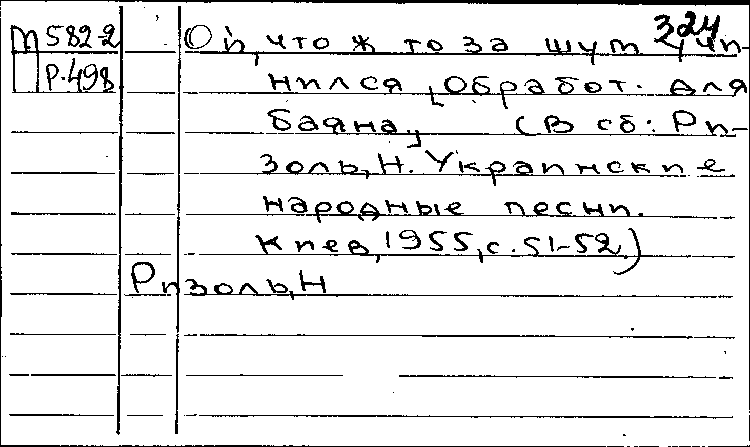 324
М 582-2
Р.498
Ой, что ж то за шум учи-
нился [Обработ. для
баяна.] (В сб: Ри-
золь, Н. Украинские
народные песни.
Киев, 1955, с. 51-52.)
Ризоль, Н